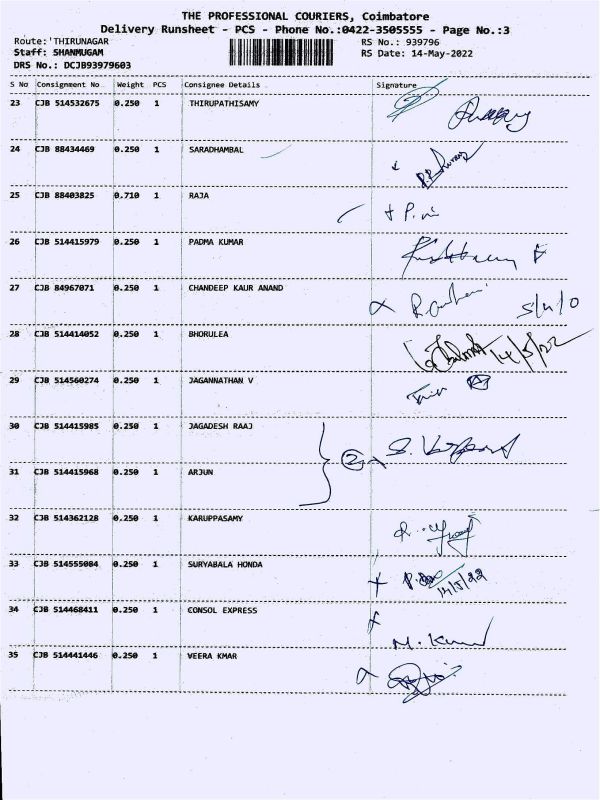 THE PROFESSIONAL COURIERS, Coimbatore
Delivery Runsheet - PCS - Phone No.:0422-3505555 - Page No.:3
Route:'THIRUNAGAR RS No.: 939796
Staff: SHANMUGAM RS Date: 14-May-2022
DRS No.: DCJB93979603
S No Consignment No Weight PCS Consignee Details Signature
23 CJB 514532675 0.250 1 THIRUPATHISAMY
24 CJB 88434469 0.250 1 SARADHAMBAL
25 CJB 88403825 0.710 1 RAJA
26 CJB 514415979 0.250 1 PADMA KUMAR
27 CJB 84967071 0.250 1 CHANDEEP KAUR ANAND
28 CJB 514414052 0.250 1 BHORULEA 14/5/22
29 CJB 514560274 0.250 1 JAGANNATHAN V
30 CJB 514415985 0.250 1 JAGADESH RAAJ
2
31 CJB 514415968 0.250 1 ARJUN
32 CJB 514362128 0.250 1 KARUPPASAMY
33 CJB 514555084 0.250 1 SURYABALA HONDA 14/5/22
34 CJB 514468411 0.250 1 CONSOL EXPRESS
35 CJB 514441446 0.250 1 VEERA KMAR